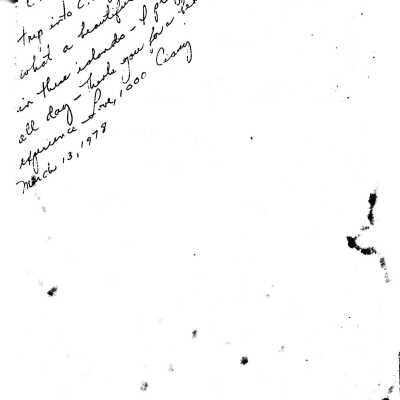 trip into C
what a beautiful
in these islands - I
all day - Thank you for a
experience - Love, 1000 Casey
March 13, 1978